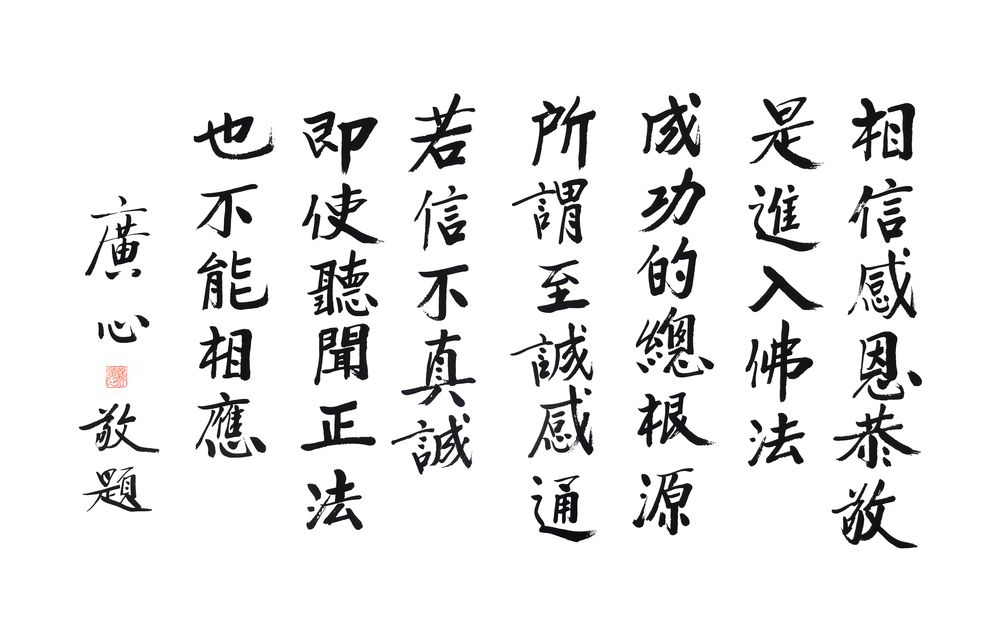 相信感恩恭敬
是進入佛法
成功的總根源
所謂至誠感通
若信不真誠
即使聽聞正法
也不能相應
廣心敬題